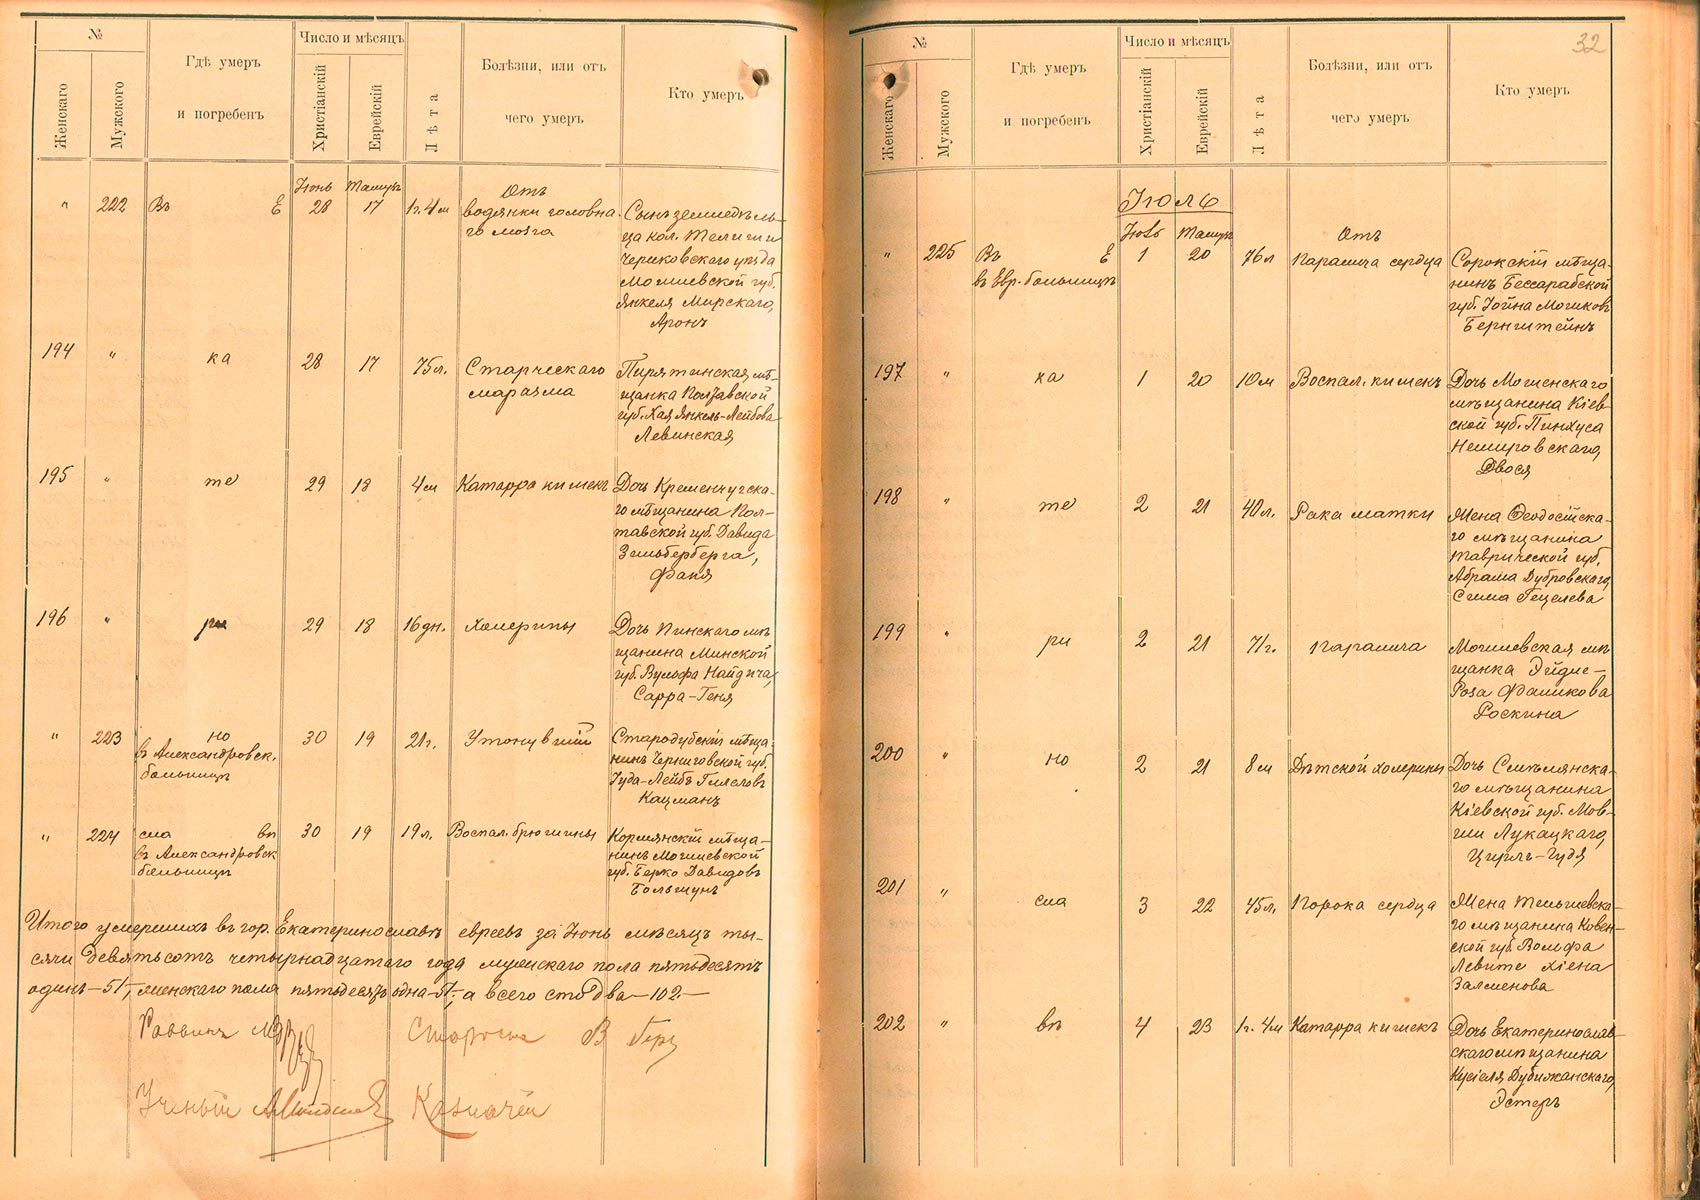 №
Женскаго
Мужского
Гдѣ умеръ
и погребенъ
Число и мѣсяцъ
Христіанскій
Еврейскій
Лѣта
Болѣзни, или отъ
чего умеръ
Кто умеръ
Іюнь Тамузъ
Отъ
" 222 Въ Е 28 17 1г. 4м водянки головна-
го мозга
Сынъ земледѣль-
ца кол.
Чериковскаго уѣзда
Могилевской губ.
Янкеля Мирскаго,
Аронъ
194 " ка 28 17 75л. Старческаго
маразма
Пирятинская мѣ-
щанка Полтавской
губ. Хая Янкель-Лейбова
Левинская
195 " те 29 18 4м Катарра кишекъ
Дочь Кременчугска-
го мѣщанина Пол-
тавской губ. Давида
Зильберберга,
Фаня
196 " ри 29 18 16дн. Холерины
Дочь Пинскаго мѣ-
щанина Минской
губ. Вульфа Найдича,
Сарра-Геня
" 223 но
въ Александровск.
больницѣ
30 19 21г. Утонувшій
Стародубскій мѣща-
нинъ Черниговской губ.
Іуда-Лейбъ
Кацманъ
" 224 сла въ
въ Александровск
больницѣ
30 19 19л. Воспал. брюшины
Кормянскій мѣща-
нинъ Могилевской
губ. Берко Давидовъ
Болшунъ
Итого умершихъ въ гор. Екатеринославѣ евреевъ за Іюнь мѣсяцъ ты-
сячи девятьсотъ четырнадцатаго года мужскаго пола пятьдесятъ
одинъ—51, женскаго пола пятьдесятъ одна—51, а всего сто два—102.—
Раввинъ
Староста В
Ученый
Казначей
32
№
Женскаго
Мужского
Гдѣ умеръ
и погребенъ
Число и мѣсяцъ
Христіанскій
Еврейскій
Лѣта
Болѣзни, или отъ
чего умеръ
Кто умеръ
Іюль
Іюль Тамузъ
Отъ
" 225 Въ Е
въ Евр. больницѣ
1 20 76л Паралича сердца
Сорокскій мѣща-
нинъ Бессарабской
губ. Іойна Мошковъ
Бернштейнъ
197 " ка 1 20 10м Воспал. кишекъ
Дочь Мошенскаго
мѣщанина Кіев-
ской губ. Пинхуса
Немировскаго,
Двося
198 " те 2 21 40л. Рака матки
Жена Ѳеодосійска-
го мѣщанина
Таврической губ.
Абрама Дубровскаго,
Сима Гецелева
199 " ри 2 21 71г. Паралича
Могилевская мѣ-
щанка Эйдие-
Роза Файшкова
Роскина
200 " но 2 21 8м Дѣтской холерины
Дочь Смѣлянска-
го мѣщанина
Кіевской губ. Мов-
ши Лукацкаго,
201 " сла 3 22 45л. Порока сердца
Жена Тельшевска-
го мѣщанина Ковен-
ской губ. Вольфа
Левите Хіена
Залменова
202 " въ 4 23 1г. 4м Катарра кишекъ
Дочь Екатеринослав-
скаго мѣщанина
Кусіеля Дубижанскаго,
Эстеръ